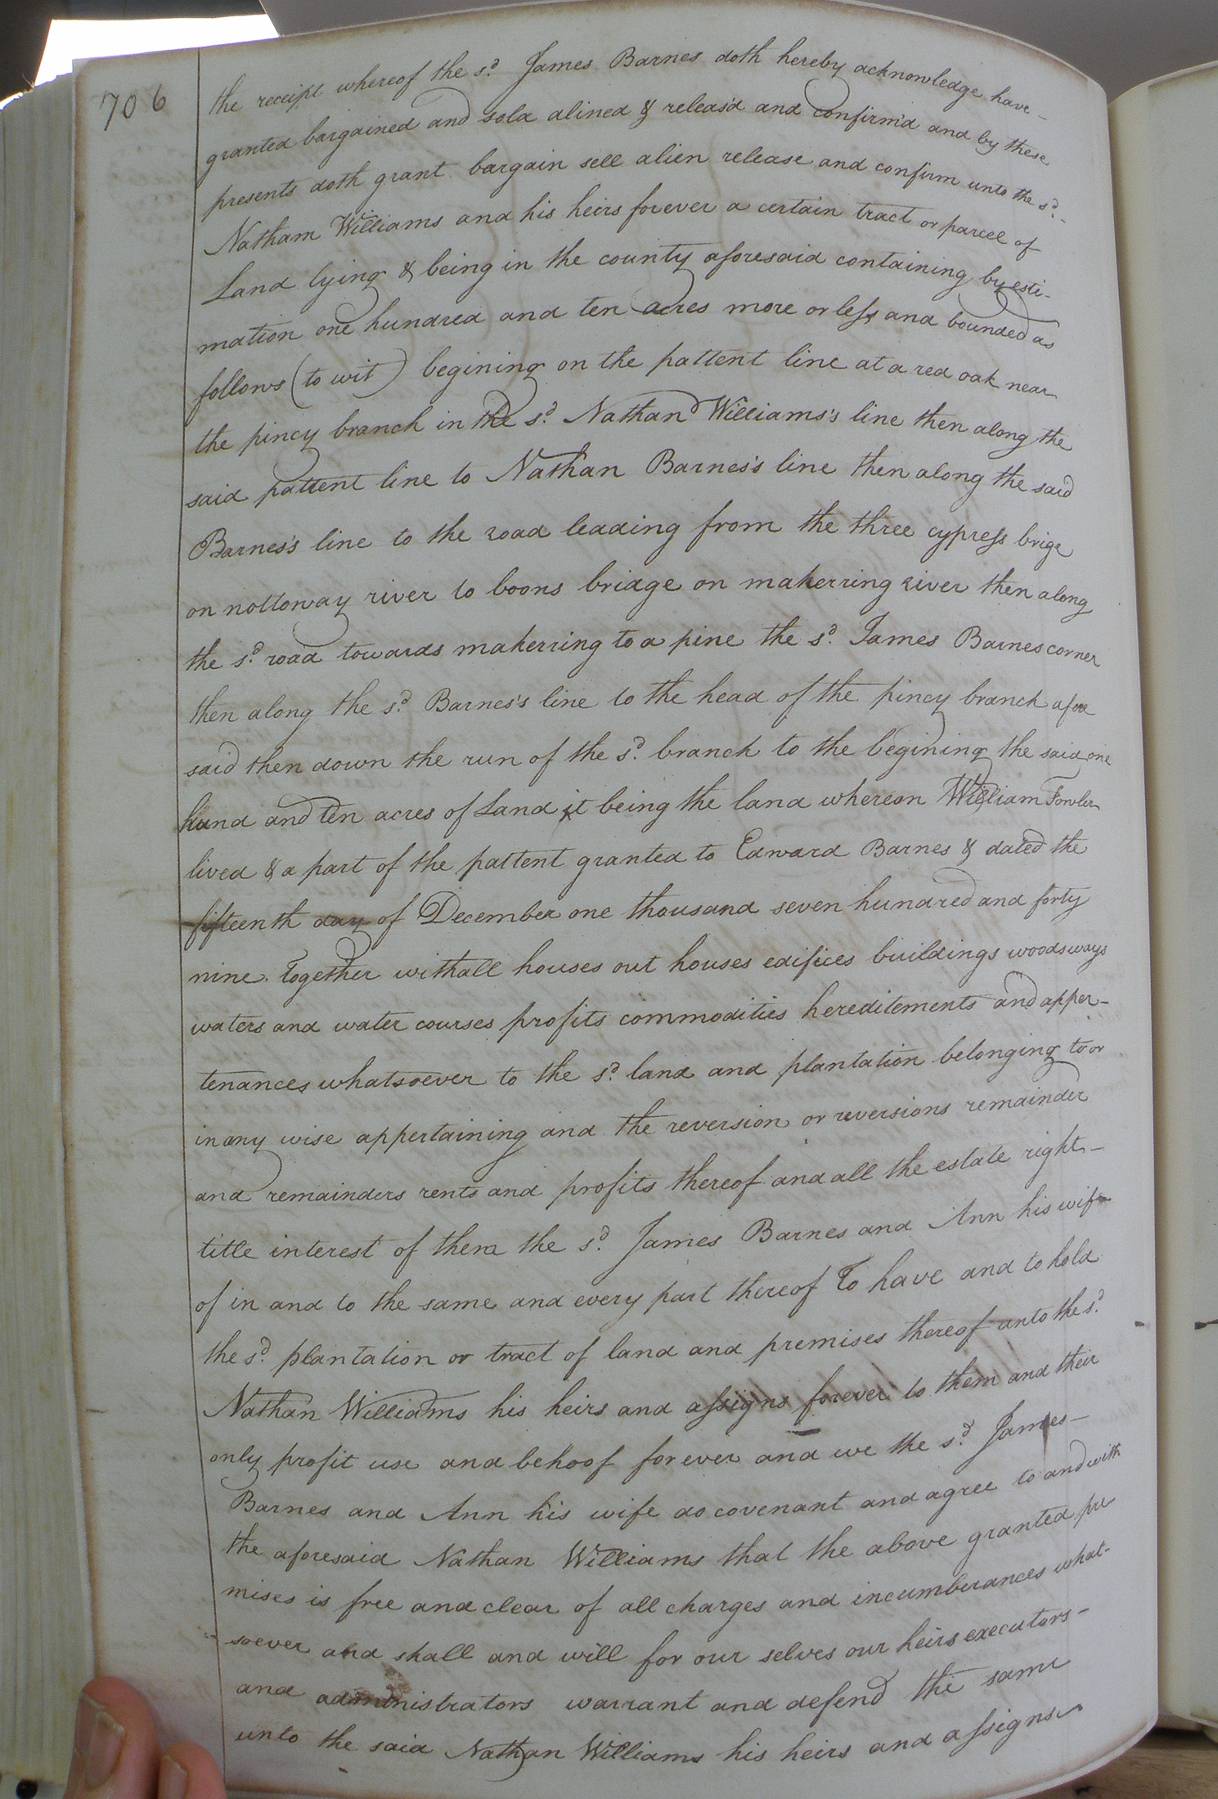 706
the receipt whereof the s.d James Barnes doth hereby acknowledge have
granted bargained and sold alined & releas'd and confirm'd and by these
presents doth grant bargain sell alien release and confirm unto the s.d
Natham Williams and his heirs forever a certain tract or parcel of
Land lying & being in the county aforesaid containing by esti-
mation one hundred and ten acres more or less and bounded as
follows (to wit) begining on the pattent line at a red oak near
the pincy branch in the s.d Nathan Williams's line then along the
said pattent line to Nathan Barnes's line then along the said
Barnes's line to the road leading from the three cypress brige
on nottoway river to boons bridge on maherring river then along
the s.d road towards maherring to a pine the s.d James Barnes corner
then along the s.d Barnes's line to the head of the pincy branch afore
said then down the run of the s.d branch to the begining the said one
hund and ten acres of Land it being the land whereon William Fowler
lived & a part of the pattent granted to Edward Barnes & dated the
fifteenth day of December one thousand seven hundred and forty
nine. Together with all houses out houses edifices buildings woods ways
waters and water courses profits commodities hereditements and apper-
tenances whatsoever to the s.d land and plantation belonging to or
in any wise appertaining and the reversion or reversions remainder
and remainders rents and profits thereof and all the estate right
title interest of them the s.d James Barnes and Ann his wife
of in and to the same and every part thereof To have and to hold
the s.d plantation or tract of land and premises thereof unto the s.d
Nathan Williams his heirs and assigns forever to them and their
only profit use and behoof forever and we the s.d James
Barnes and Ann his wife do covenant and agree to and with
the aforesaid Nathan Williams that the above granted pre
mises is free and clear of all charges and incumberances what-
soever and shall and will for our selves our heirs executors
and administrators warrant and defend the same
unto the said Nathan Williams his heirs and assigns